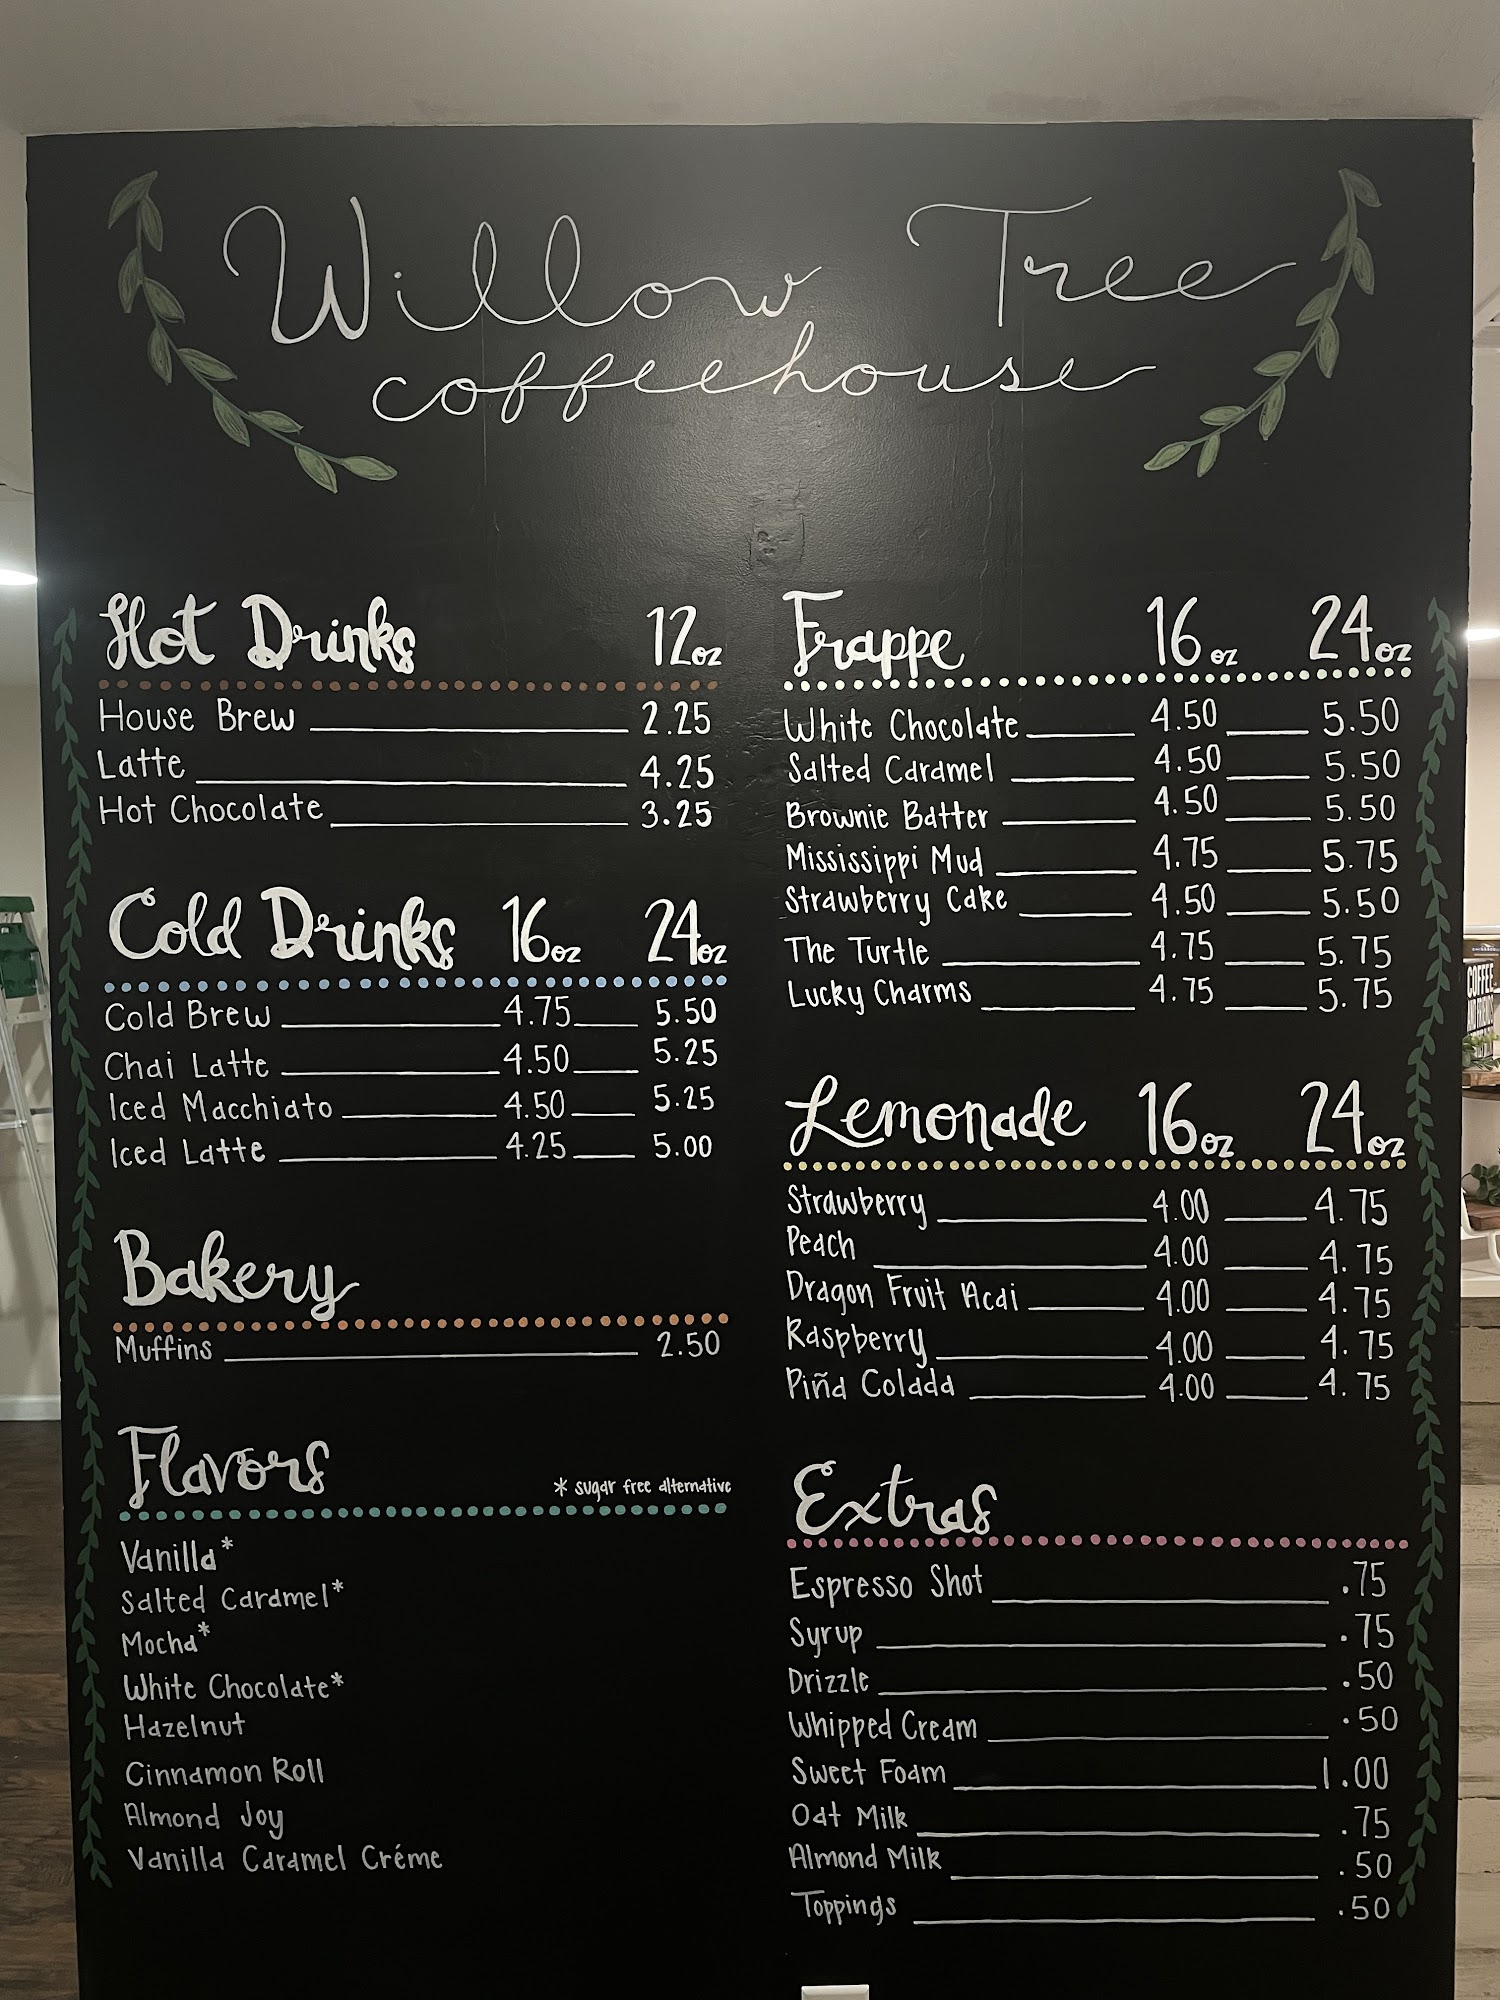 Willow Tree
coffeehouse
Hot Drinks 12oz
House Brew 2.25
Latte 4.25
Hot Chocolate 3.25
Cold Drinks 16oz 24oz
Cold Brew 4.75 5.50
Chai Latte 4.50 5.25
Iced Macchiato 4.50 5.25
Iced Latte 4.25 5.00
Bakery
Muffins 2.50
Flavors * sugar free alternative
Vanilla*
Salted Caramel*
Mocha*
White Chocolate*
Hazelnut
Cinnamon Roll
Almond Joy
Vanilla Caramel Créme
Frappe 16oz 24oz
White Chocolate 4.50 5.50
Salted Caramel 4.50 5.50
Brownie Batter 4.50 5.50
Mississippi Mud 4.75 5.75
Strawberry Cake 4.50 5.50
The Turtle 4.75 5.75
Lucky Charms 4.75 5.75
Lemonade 16oz 24oz
Strawberry 4.00 4.75
Peach 4.00 4.75
Dragon Fruit Acai 4.00 4.75
Raspberry 4.00 4.75
Piña Colada 4.00 4.75
Extras
Espresso Shot .75
Syrup .75
Drizzle .50
Whipped Cream .50
Sweet Foam 1.00
Oat Milk .75
Almond Milk .50
Toppings .50
COFFEE